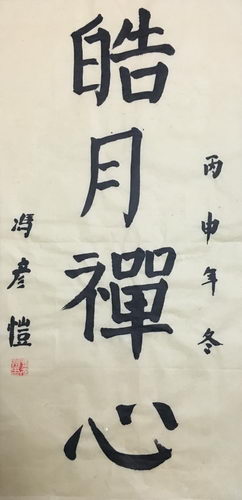 丙申年冬
皓月禪心
馮彥愷